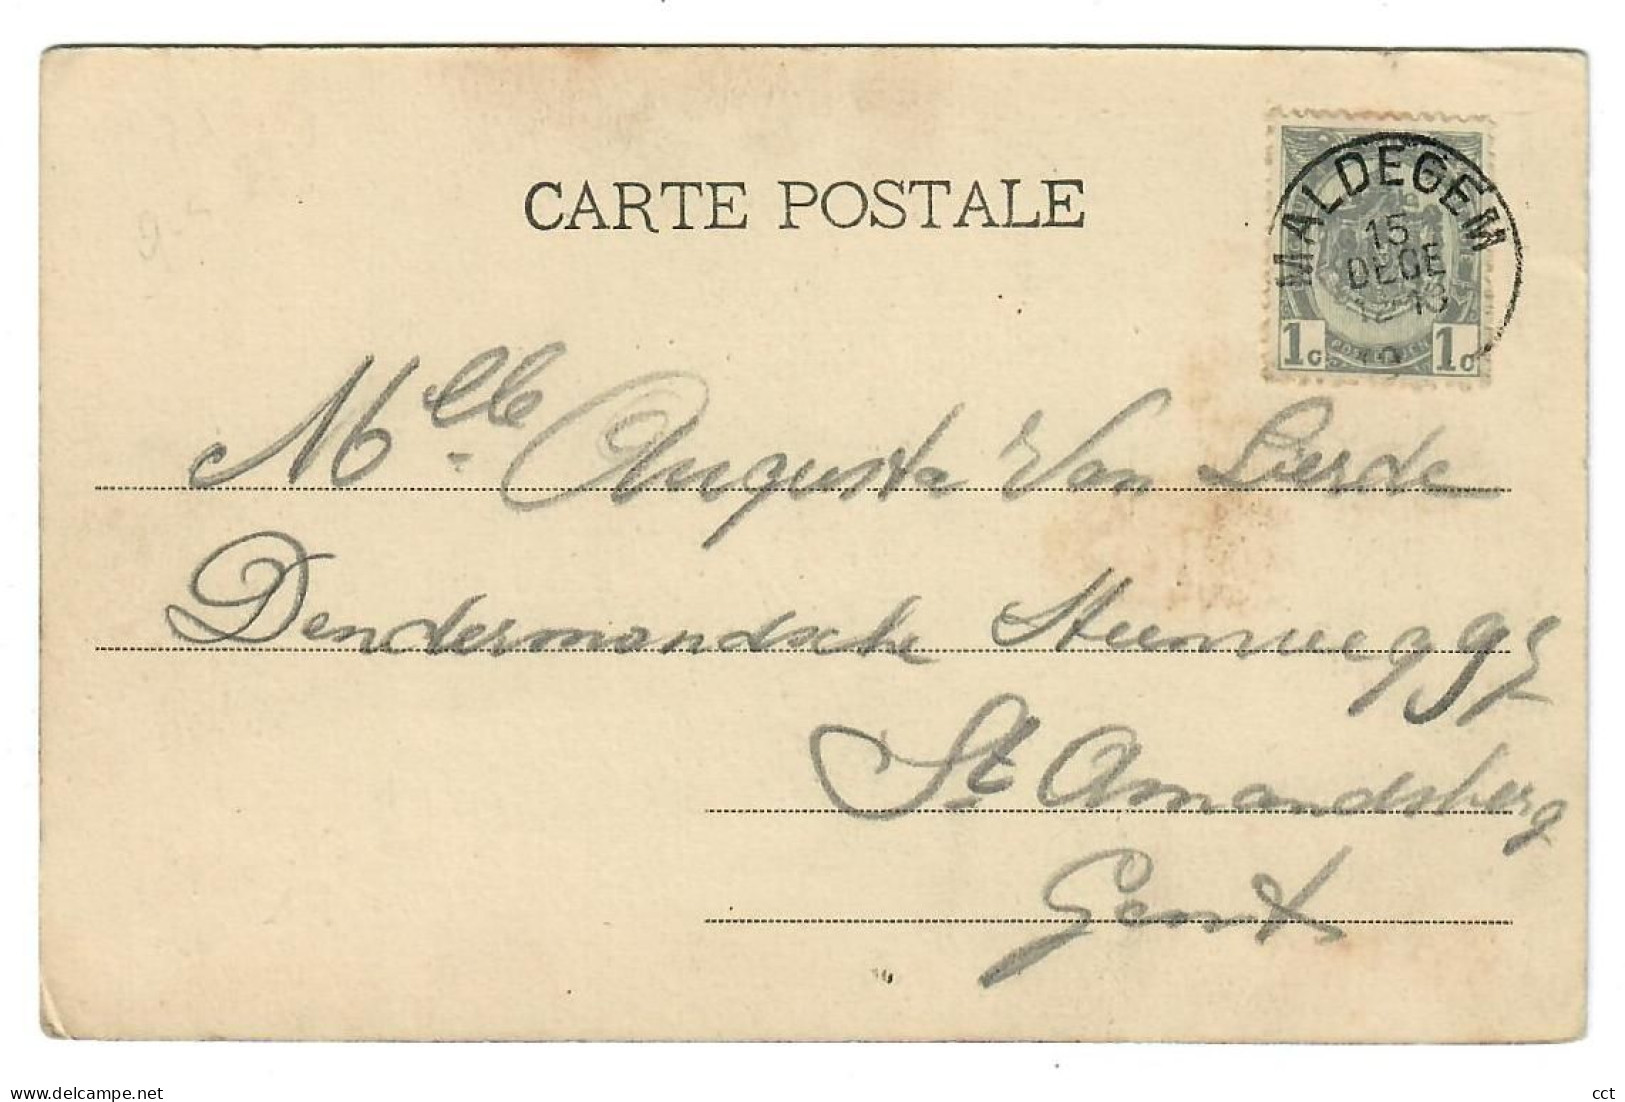 CARTE POSTALE
MALDEGEM
15
DECE
12-13
1c 1c
Mlle Augusta Van Lierde
Dendermondsche Steenweg 95
St Amandsberg
Gent
delcampe.net
cct